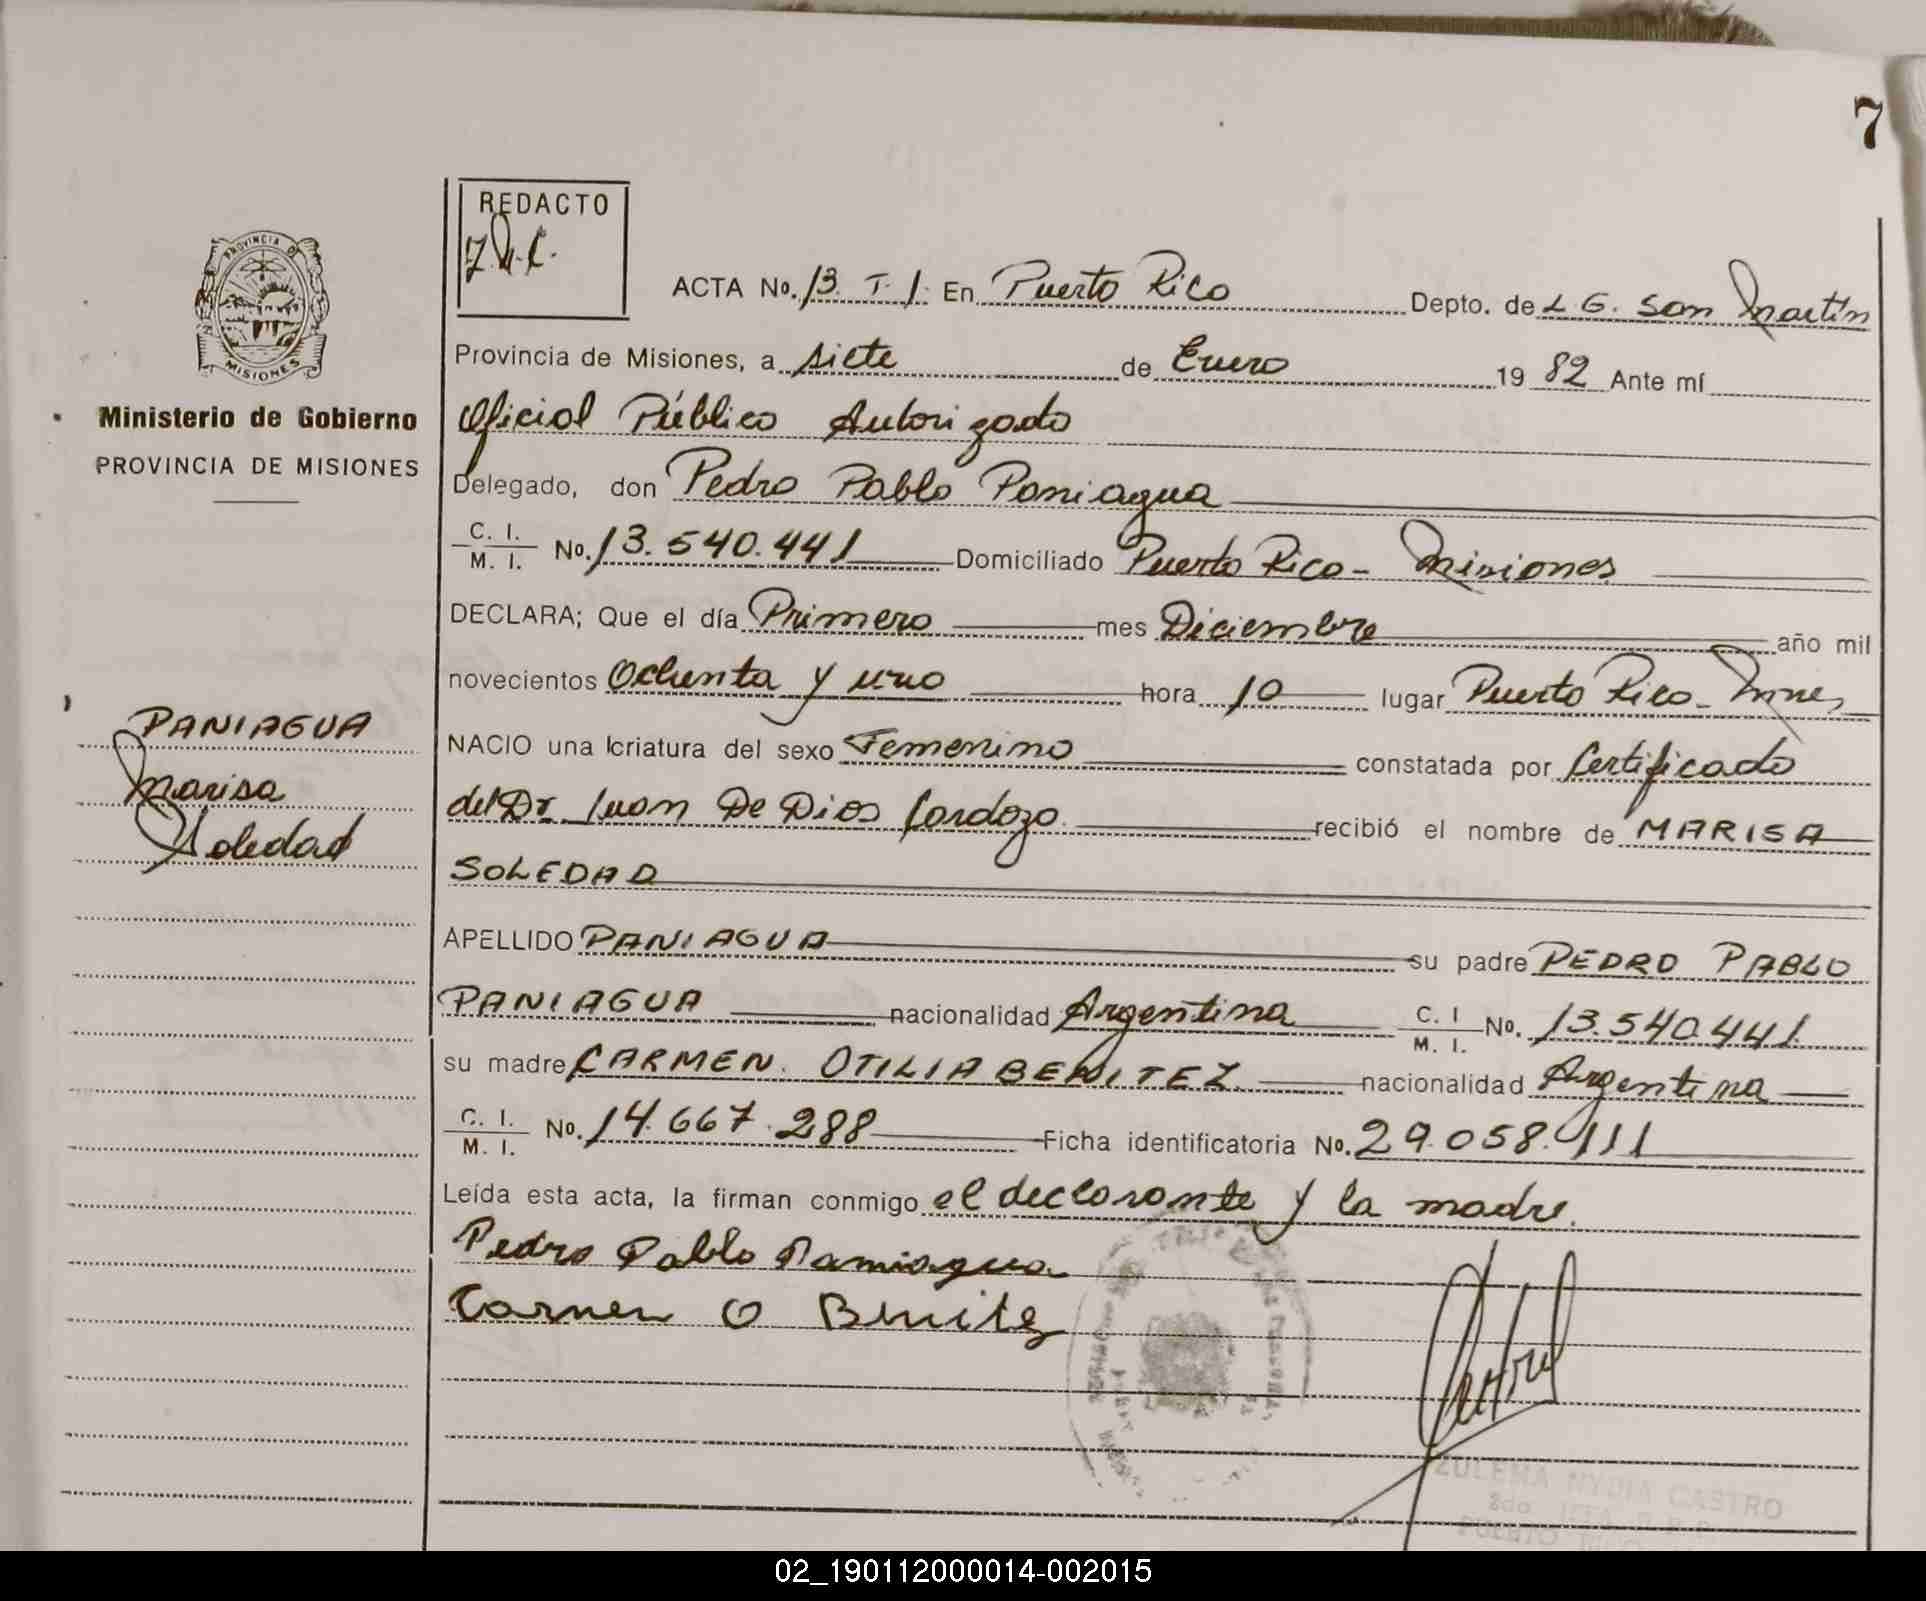 7
REDACTO
Z.N.C.
PROVINCIA DE
MISIONES
Ministerio de Gobierno
PROVINCIA DE MISIONES
PANIAGUA
Marisa
Soledad
ACTA No. 13. T. 1. En Puerto Rico Depto. de L G. San Martín
Provincia de Misiones, a siete de Enero 19 82 Ante mí
Oficial Público Autorizado
Delegado, don Pedro Pablo Paniagua
C. I. M. I. No. 13.540.441 Domiciliado Puerto Rico - Misiones
DECLARA; Que el día Primero mes Diciembre año mil
novecientos Ochenta y uno hora 10 lugar Puerto Rico - Mnes
NACIO una criatura del sexo Femenino constatada por Certificado
del Dr. Juan De Dios Cardozo recibió el nombre de MARISA
SOLEDAD
APELLIDO PANIAGUA su padre PEDRO PABLO
PANIAGUA nacionalidad Argentina C. I M. I. No. 13.540.441
su madre CARMEN. OTILIA BENITEZ nacionalidad Argentina
C. I. M. I. No. 14.667.288 Ficha identificatoria No. 29.058.111
Leída esta acta, la firman conmigo el declarante y la madre.
Pedro Pablo Paniagua
Carmen O Benitez
ZULEMA NYDIA CASTRO
PUERTO RICO
02_190112000014-002015